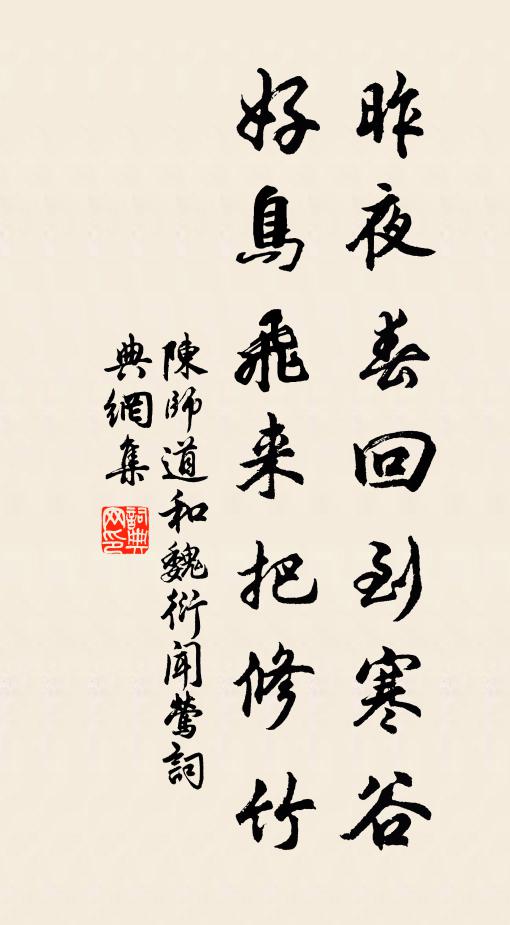 昨夜春回到寒谷
好鳥飛来把修竹
陳師道和魏衍聞鶯詞
典網集
詞典網印